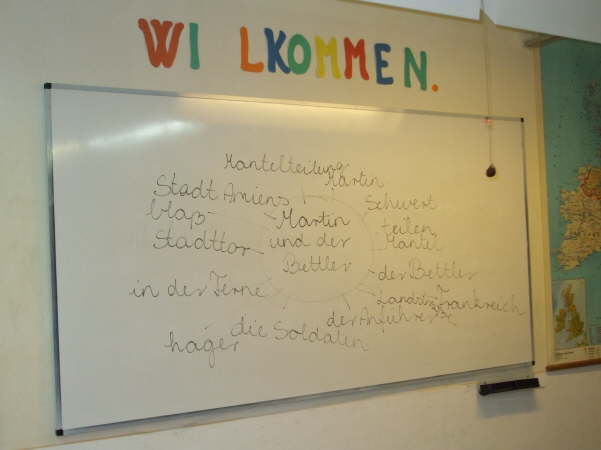 WILLKOMMEN.
Mantelteilung
Martin
Stadt Amiens
Schwert
blaß
Martin
teilen
Stadttor
und der
Mantel
Bettler
der Bettler
in der Ferne
Frankreich
der Anführer
die Soldaten
hager